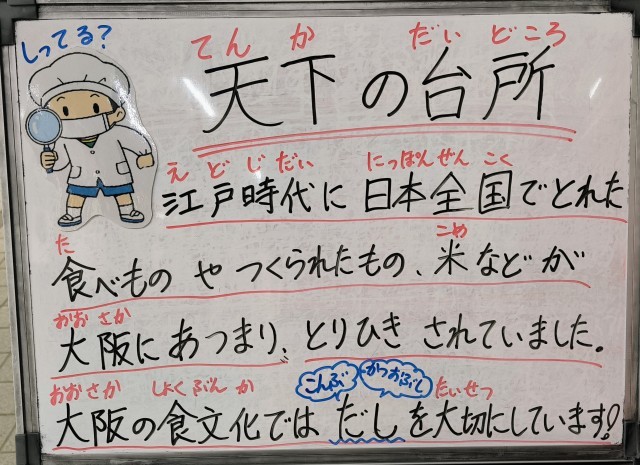 しってる?
てんか だいどころ
天下の台所
えどじだい にっぽんぜんこく
江戸時代に日本全国でとれた
た こめ
食べものやつくられたもの、米などが
おおさか
大阪にあつまり、とりひきされていました。
こんぶ かつおぶし
おおさか しょくぶんか たいせつ
大阪の食文化ではだしを大切にしています!